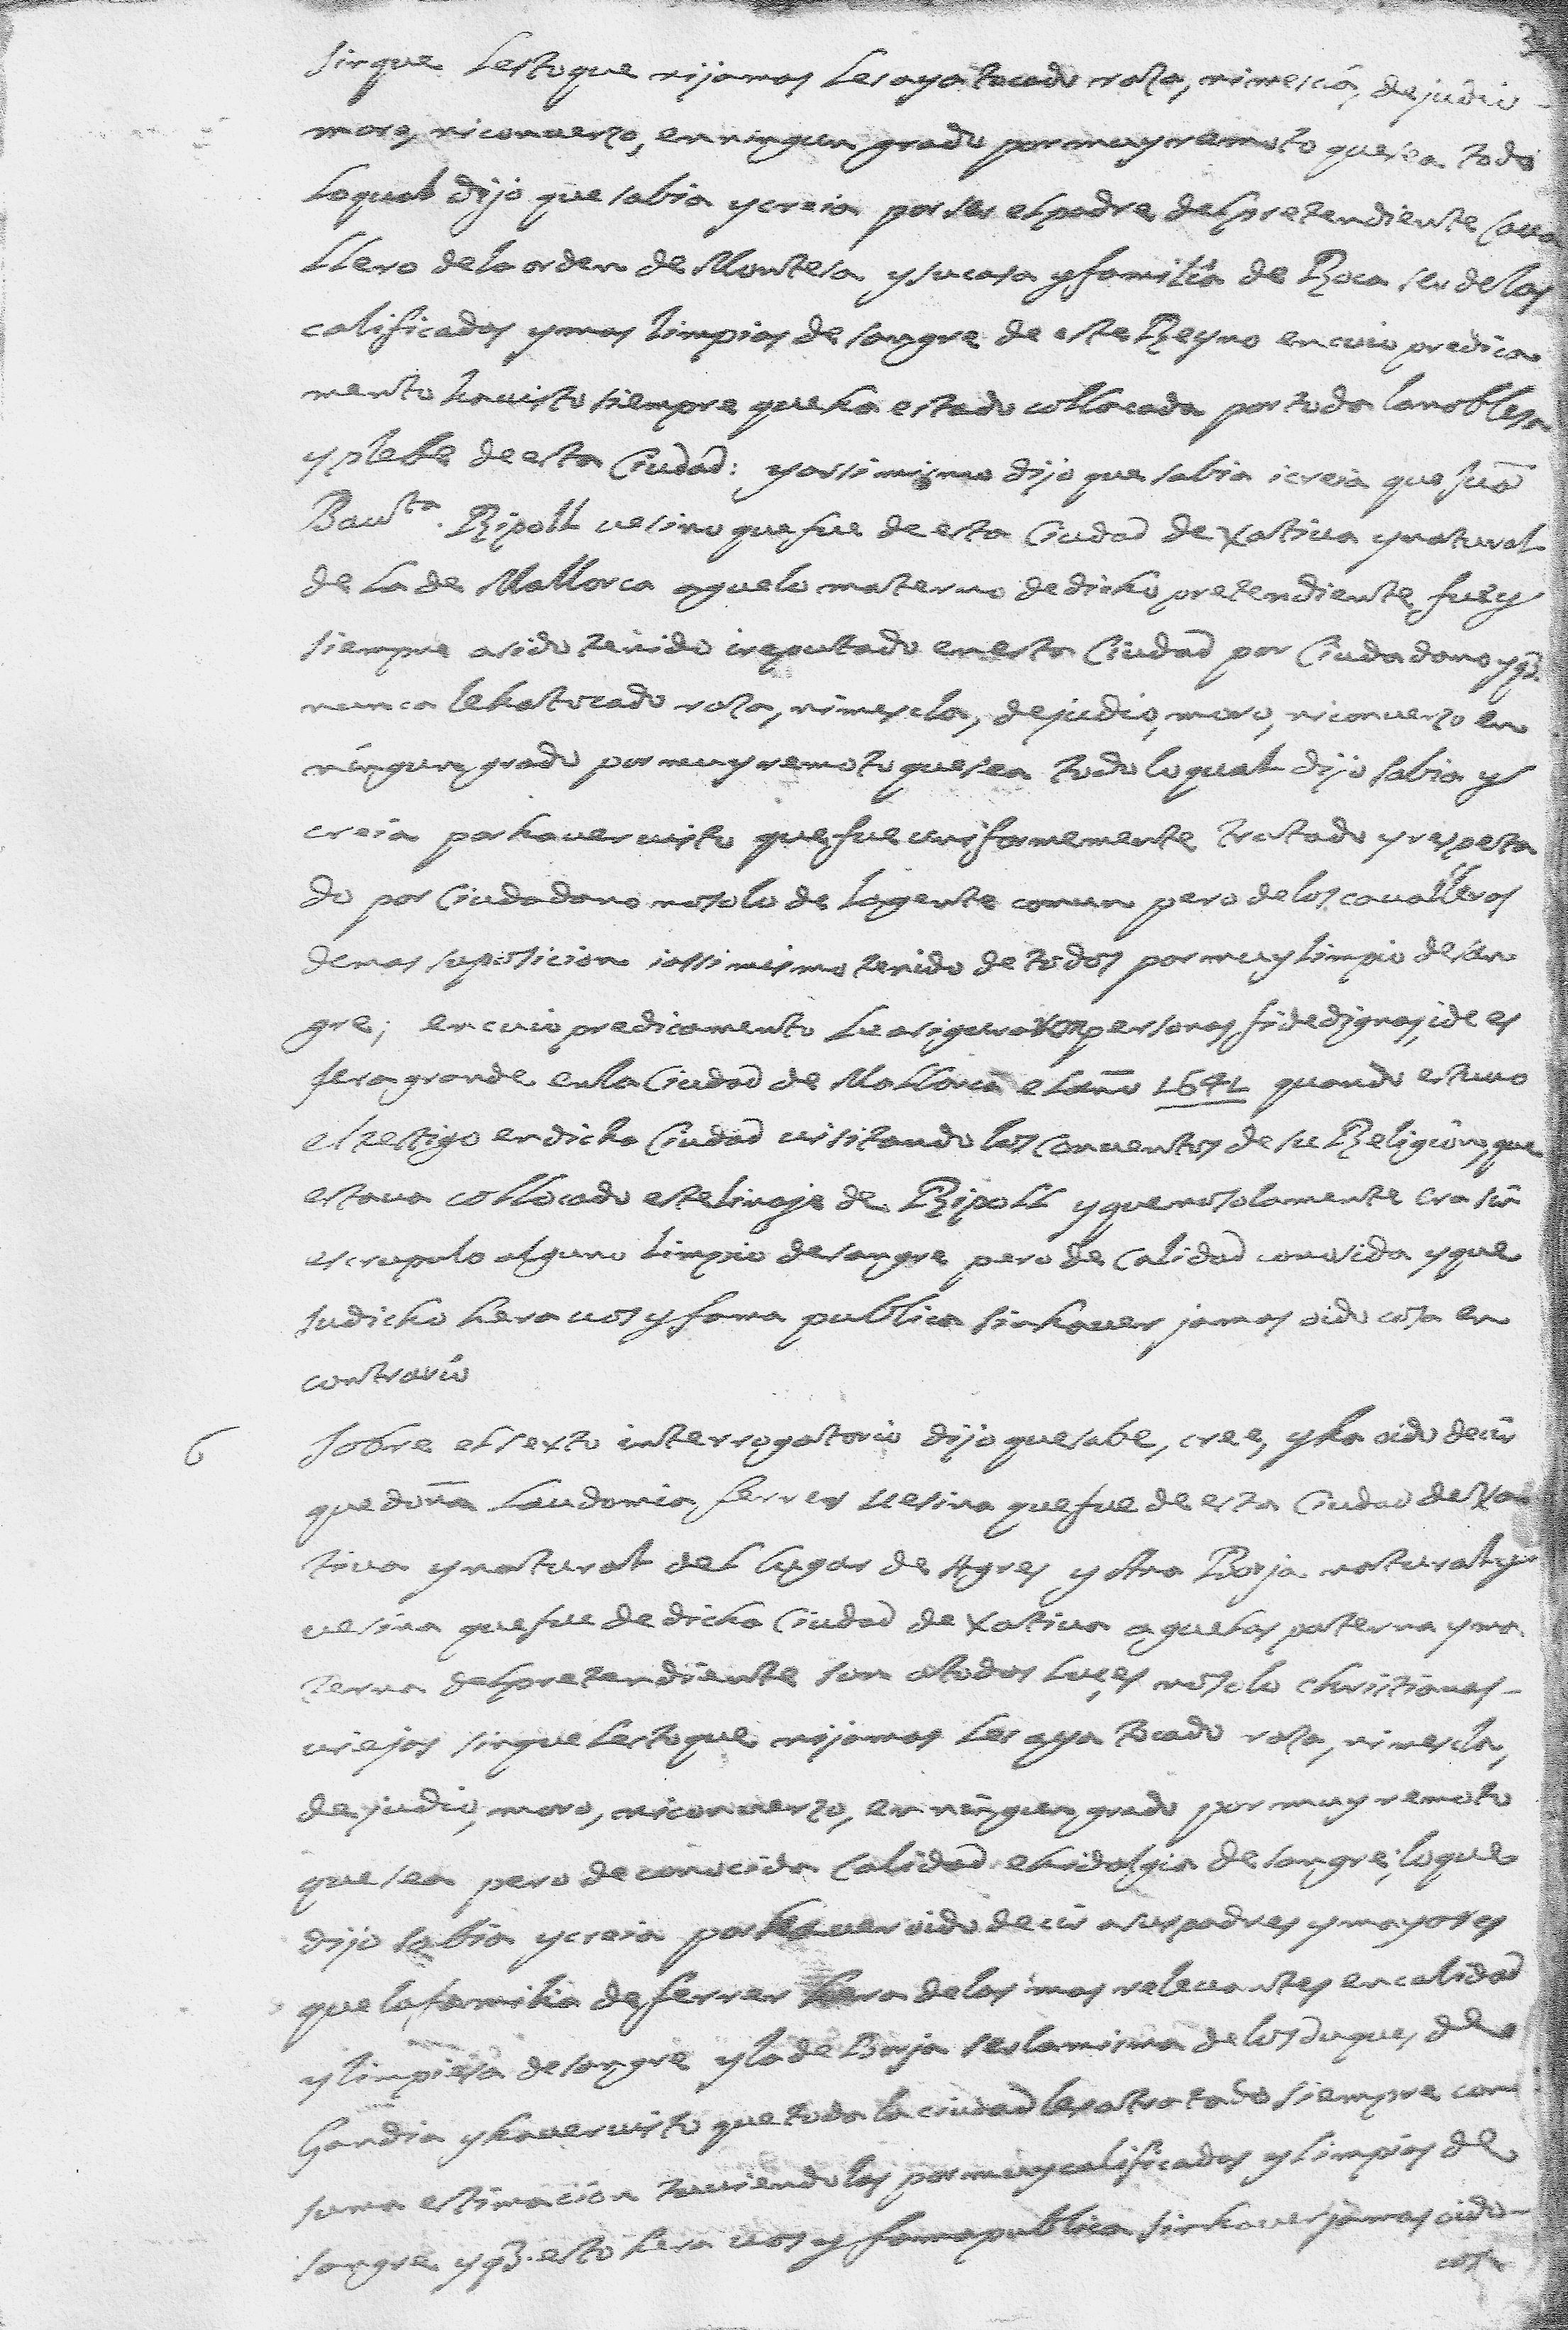 sin que les toque ni jamas les aya tocado rasa, ni mescla, de judio
moro, ni converzo, en ningun grado por muy remoto que sea todo
lo qual dijo que sabia y creia por ser el padre del pretendiente Cava
llero de la orden de Montesa y su casa y familia de Roca ser de las
calificadas y mas limpias de sangre de este Reyno en cuio predica
mento ha visto siempre que ha estado collocada por toda la noblesa
y plebe de esta Ciudad: y assimismo dijo que sabia i creia que Juº
Bauta. Ripoll vesino que fue de esta Ciudad de Xativa y natural
de la de Mallorca aguelo materno de dicho pretendiente, fue y
siempre a sido tenido i reputado en esta Ciudad por Ciudadano y q̃.
nunca le ha tocado rasa, ni mescla, de judio, moro, ni converzo en
ningun grado por muy remoto que sea todo lo qual dijo sabia y
creia por haver visto que fue uniformemente tratado y respeta
do por Ciudadano no solo de la gente comun pero de los cavalleros
de mas suposicion i assimismo tenido de todos por muy limpio de san
gre; en cuio predicamento le asiguraron personas fidedignas, i de es
fera grande en la Ciudad de Mallorca el año 1641 quando estuvo
el testigo en dicha Ciudad visitando los Conventos de su Religion, que
estava collocado este linaje de Ripoll y que no solamente era sin
escrupulo alguno limpio de sangre pero de Calidad conosida y que
su dicho hera vos y fama publica sin haver jamas oido cosa en
contrario
6 Sobre el sexto interrogatorio dijo que sabe, cree, y ha oido decir
que doña Laudomia Ferrer vesina que fue de esta Ciudad de Xa
tiva y natural del lugar de Agres y Ana Borja natural y
vesina que fue de dicha Ciudad de Xativa aguelas paterna y ma
terna del pretendiente son a todas luçes no solo christianas
viejas sin que les toque ni jamas les aya tocado rasa, ni mescla,
de judio, moro, ni converzo, en ningun grado por muy remoto
que sea pero de conocida Calidad e hidalgia de sangre; lo que
dijo sabia y creia por haver oido decir a sus padres y mayores
que la familia de Ferrer hera de las mas relevantes en calidad
y limpiesa de sangre y la de Borja ser la misma de los Duques de
Gandia y haver visto que toda la ciudad les a tratado siempre con
suma estimacion tuviendolas por muy calificadas y limpias de
sangre y q̃. esto hera vos y fama publica sin haver jamas oido
cosa